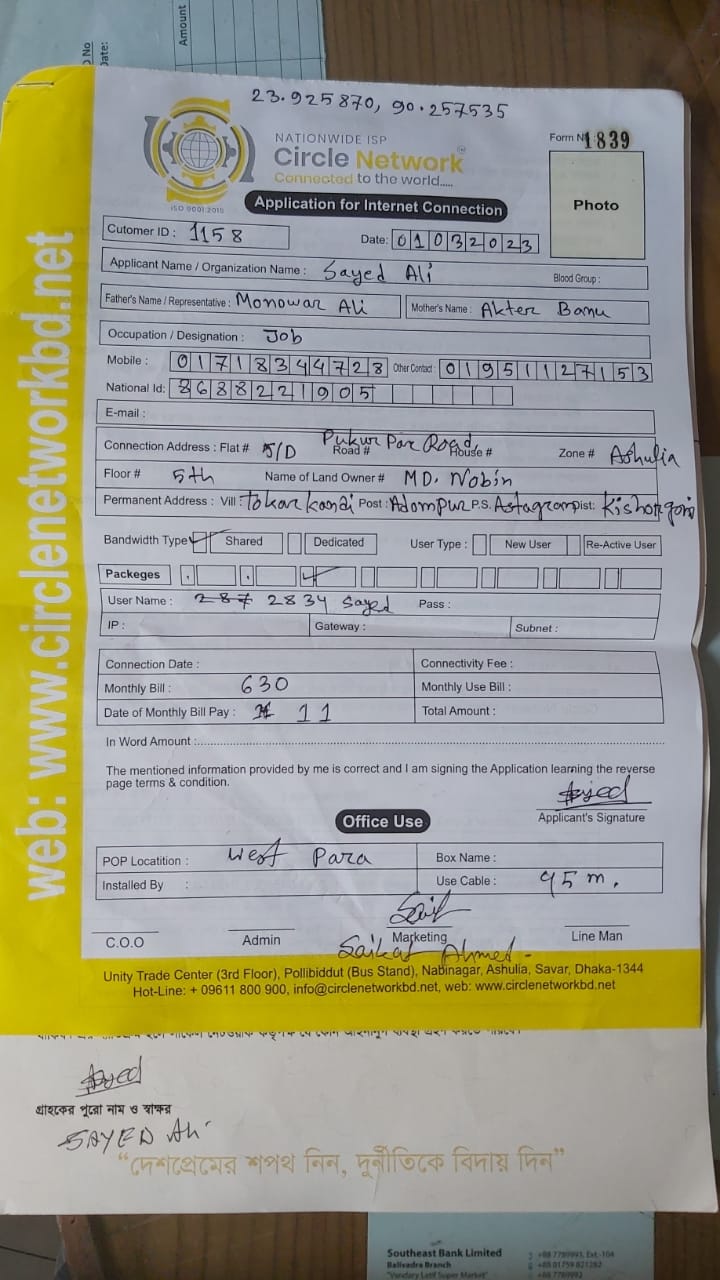 No
Date:
Amount
23.925870, 90.257535
NATIONWIDE ISP
Circle Network
Connected to the world.....
ISO 9001:2015
Form No 1839
Photo
Application for Internet Connection
Cutomer ID : 1158
Date: 01032023
Applicant Name / Organization Name : Sayed Ali
Blood Group :
Father's Name / Representative : Monowar Ali
Mother's Name : Akter Banu
Occupation / Designation : Job
Mobile : 01718344728 Other Contact : 01951127153
National Id: 8688221905
E-mail :
Connection Address : Flat # 5/D Road # Pukur Par Road, House # Zone # Ashulia
Floor # 5th Name of Land Owner # MD. Nobin
Permanent Address : Vill : Tokarkandi Post : Adompur P.S. Astagram Dist: Kishorgonj
Bandwidth Type ✓ Shared Dedicated User Type : New User Re-Active User
Packeges ✓
User Name : 287 2834 Sayed Pass :
IP : Gateway : Subnet :
Connection Date : Connectivity Fee :
Monthly Bill : 630 Monthly Use Bill :
Date of Monthly Bill Pay : 11 Total Amount :
In Word Amount :
The mentioned information provided by me is correct and I am signing the Application learning the reverse
page terms & condition.
Sayed
Applicant's Signature
Office Use
POP Locatition : West Para Box Name :
Installed By : Use Cable : 95 m.
Saif
C.O.O Admin Marketing Line Man
Saikat Ahmed
Unity Trade Center (3rd Floor), Pollibiddut (Bus Stand), Nabinagar, Ashulia, Savar, Dhaka-1344
Hot-Line: + 09611 800 900, info@circlenetworkbd.net, web: www.circlenetworkbd.net
web: www.circlenetworkbd.net
Sayed
গ্রাহকের পুরো নাম ও স্বাক্ষর
SAYED Ali
“দেশপ্রেমের শপথ নিন, দুর্নীতিকে বিদায় দিন”
Southeast Bank Limited